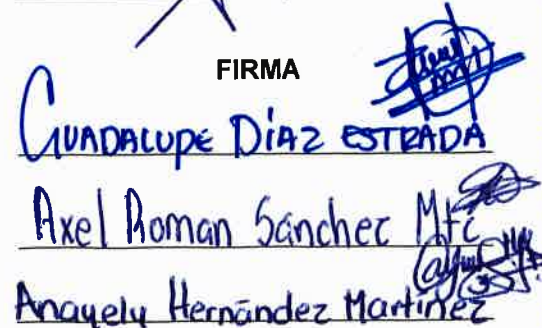 FIRMA
GUADALUPE DÍAZ ESTRADA
Axel Roman Sánchez Mtz
Anayely Hernández Martínez